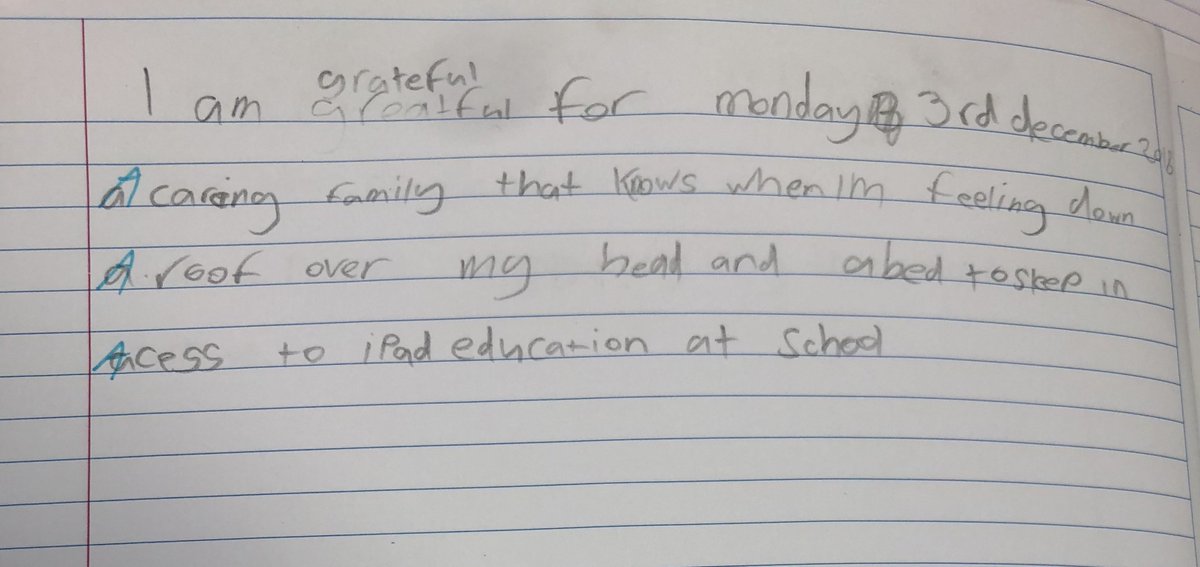 grateful
I am greatful for monday 3rd december 2018
A caring family that knows when Im feeling down
A roof over my head and a bed to sleep in
Acess to iPad education at School